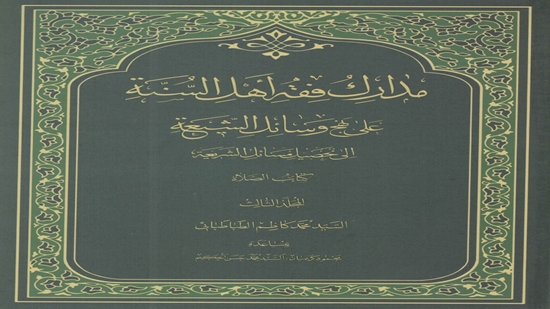 مدارك فقه أهل السنة
على نهج وسائل الشيعة
إلى تحصيل مسائل الشريعة
كتاب الصلاة
المجلد الثالث
السيد محمد كاظم الطباطبائي
بمساعدة
السيد محمد حسن الحكيم